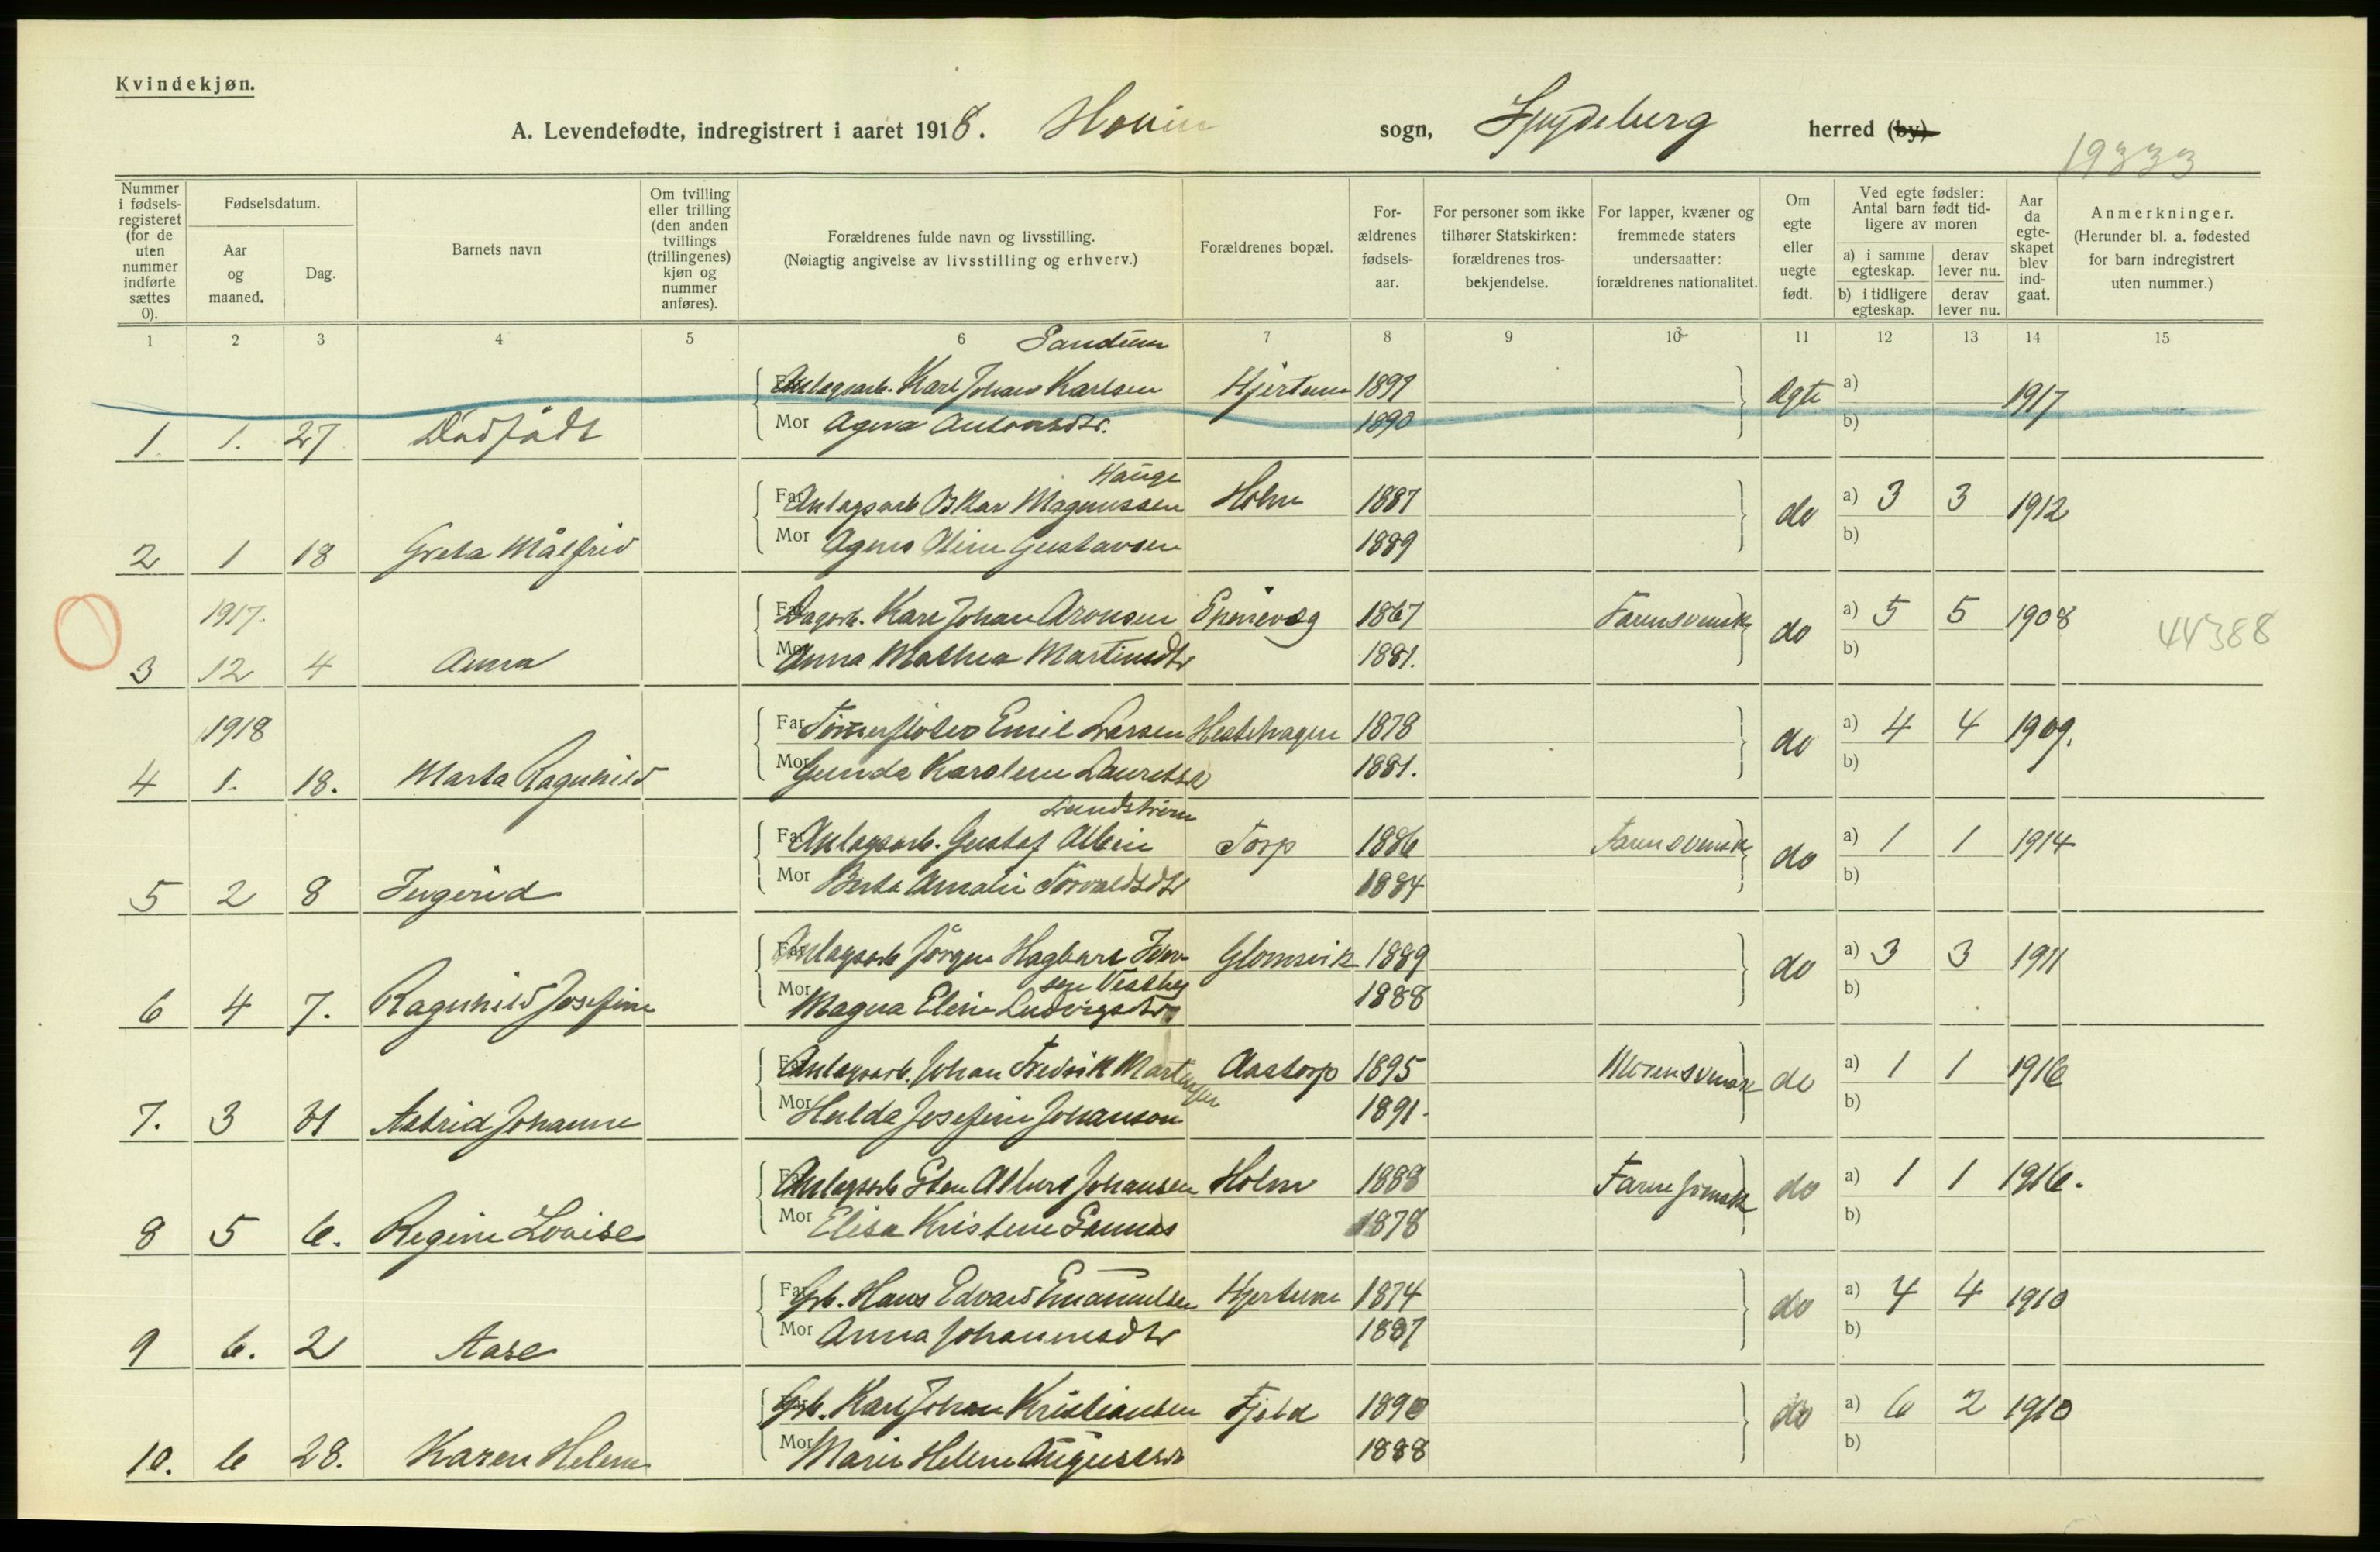 Kvindekjøn.
A. Levendefødte, indregistrert i aaret 1918. Hovin sogn, Spydeberg herred (by).
19333
Nummer i fødselsregisteret (for de uten nummer indførte sættes 0).
Fødselsdatum.
Aar og maaned.
Dag.
Barnets navn
Om tvilling eller trilling (den anden tvillings (trillingenes) kjøn og nummer anføres).
Forældrenes fulde navn og livsstilling.
(Nøiagtig angivelse av livsstilling og erhverv.)
Forældrenes bopæl.
Forældrenes fødselsaar.
For personer som ikke tilhører Statskirken: forældrenes trosbekjendelse.
For lapper, kvæner og fremmede staters undersaatter: forældrenes nationalitet.
Om egte eller uegte født.
Ved egte fødsler: Antal barn født tidligere av moren
a) i samme egteskap.
derav lever nu.
b) i tidligere egteskap.
derav lever nu.
Aar da egteskapet blev indgaat.
Anmerkninger.
(Herunder bl. a. fødested for barn indregistrert uten nummer.)
1 2 3 4 5 6 7 8 9 10 11 12 13 14 15
Sandum
Anlagsarb. Karl Johan Karlsen Hjertum 1897 Egte a) 1917
1. 1. 27 Dødfødt Mor Agnes Antonsdtr. 1890 b)
Hauge
Far Anlagsarb Oskar Magnussen Holm 1887 do a) 3 3 1912
2 1 18 Greta Målfrid Mor Agnes Oline Gustavsen 1889 b)
1917.
Far Dagarb. Karl Johan Aronsen 1867 Faren svensk do a) 5 5 1908 44388
3 12 4 Anna Mor Anna Mathea Martinsdtr 1881. b)
1918
Far Tømmerfløter Emil Larsen Hestehagen 1878 do a) 4 4 1909.
4 1. 18. Marta Ragnhild Mor Gunda Karoline Lauritsd 1881. b)
Lundstrøm
Far Anlagsarb. Gustaf Albin Torp 1886 Faren svensk do a) 1 1 1914
5 2 8 Ingerid Mor Berta Amalie Torvaldsdtr 1884 b)
Far Anlagsarb Jörgen Hagbart Iver- Glomsvik 1889 do a) 3 3 1911
sen Vestby
6 4 7. Ragnhild Josefine Mor Magna Eline Ludvigsdtr. 1888 b)
Far Anlagsarb. Johan Fredrik Martinsen Aastorp 1895 Moren svensk do a) 1 1 1916
7. 3 31 Astrid Johanne Mor Hulda Josefine Johanson 1891. b)
Far Anlagsarb Sten Albert Johansen Holm 1888 Faren svensk do a) 1 1 1916.
8 5 6. Regine Louise Mor Elisa Kristine 1878 b)
Far Grb. Hans Edvard Emanuelsen Hjertum 1874 do a) 4 4 1910
9 6. 2 Aase Mor Anna Johannesdtr 1887 b)
Grb. Karl Johan Kristiansen Fjeld 1890 do a) 6 2 1910
10. 6 28. Karen Helene Mor Marie Helene Augustsdr 1888 b)